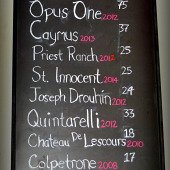 Opus One 2012 75
Caymus 2013 37
Priest Ranch 2012 32
St. Innocent 2014 25
Joseph Drouhin 2012 24
Quintarelli 2012 33
Chateau De Lescours 2010 18
Colpetrone 2008 17